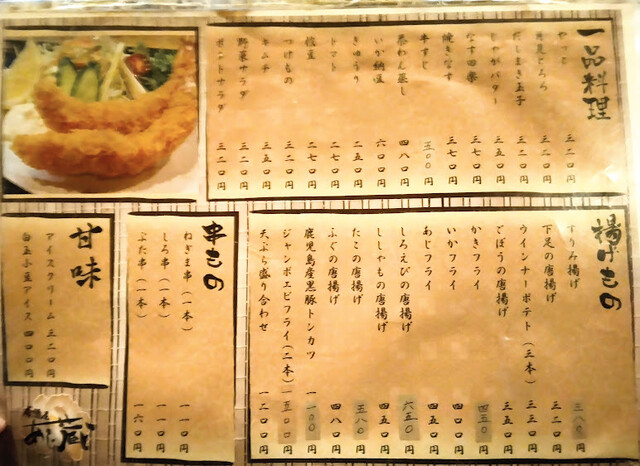 一品料理
やっこ 三二〇円
月見とろろ 三二〇円
だしまき玉子 三二〇円
じゃがバター 三五〇円
なす田楽 三七〇円
焼きなす 三七〇円
牛すじ 五〇〇円
茶わん蒸し 四八〇円
いか納豆 六〇〇円
きゅうり 二五〇円
トマト 二七〇円
枝豆 二七〇円
つけもの 三二〇円
キムチ 三五〇円
野菜サラダ 三二〇円
ポテトサラダ 三二〇円
揚げもの
すりみ揚げ 三八〇円
下足の唐揚げ 三二〇円
ウインナーポテト(三本) 三三〇円
ごぼうの唐揚げ 三五〇円
かきフライ 四五〇円
いかフライ 四〇〇円
あじフライ 四五〇円
しろえびの唐揚げ 六五〇円
ししゃもの唐揚げ 四五〇円
たこの唐揚げ 五八〇円
ふぐの唐揚げ 四八〇円
鹿児島産黒豚トンカツ 一一〇〇円
ジャンボエビフライ(二本) 一五〇〇円
天ぷら盛り合わせ 一二〇〇円
串もの
ねぎま串(一本) 一一〇円
しろ串(一本) 一一〇円
ぶた串(一本) 一六〇円
甘味
アイスクリーム 三二〇円
白玉小豆アイス 四〇〇円
蔵